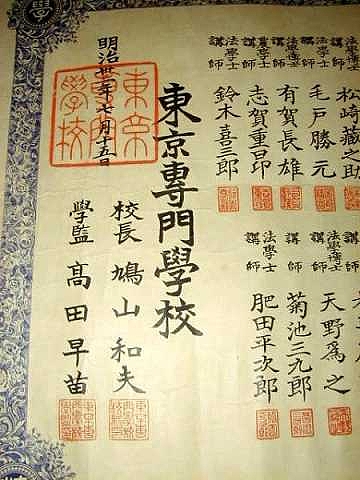 學
法學博士
講師 松崎藏之助
法學士
講師 毛戸勝元
法學博士
講師 有賀長雄
農學士
講師 志賀重昂
法學士
講師 鈴木喜三郎
法學博士
講師 天野爲之
講師 菊池三九郎
法學士
講師 肥田平次郎
東京專門學校
校長 鳩山和夫
學監 高田早苗
明治卅年七月十五日
東京
專門
學校